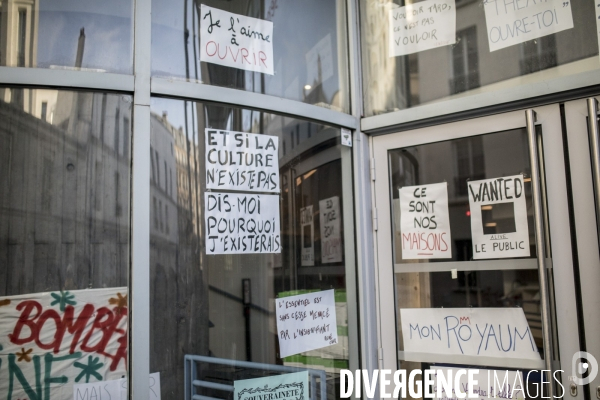 Je l'aime
à
OUVRIR
VOULOIR TRO,
CE N'EST
PAS
VOULOIR
THÉÂTRE
OUVRE-TOI"
ET SI LA
CULTURE
N'EXISTE PAS
DIS-MOI
POURQUOI
J'EXISTERAIS
CE
SONT
NOS
MAISONS
WANTED
ALIVE
LE PUBLIC
L'ESSENTIEL EST
SANS CESSE MENACÉ
PAR L'INSIGNIFIANT
MON ROYAUME
BOMBE
NE
MAIS
SOUVERAINETE
DIVERGENCE-IMAGES.COM